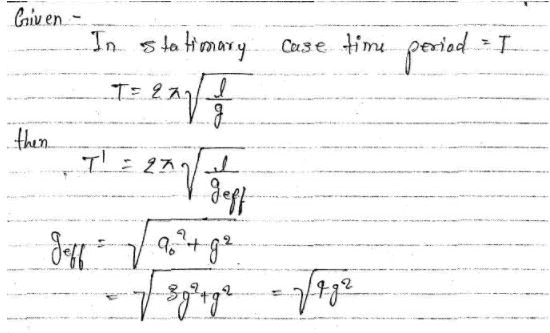 Given -
In stationary case time period = T
T = 2π√(l/g)
then
T' = 2π√(l/g_eff)
g_eff = √(a₀² + g²)
= √(3g² + g²) = √(4g²)